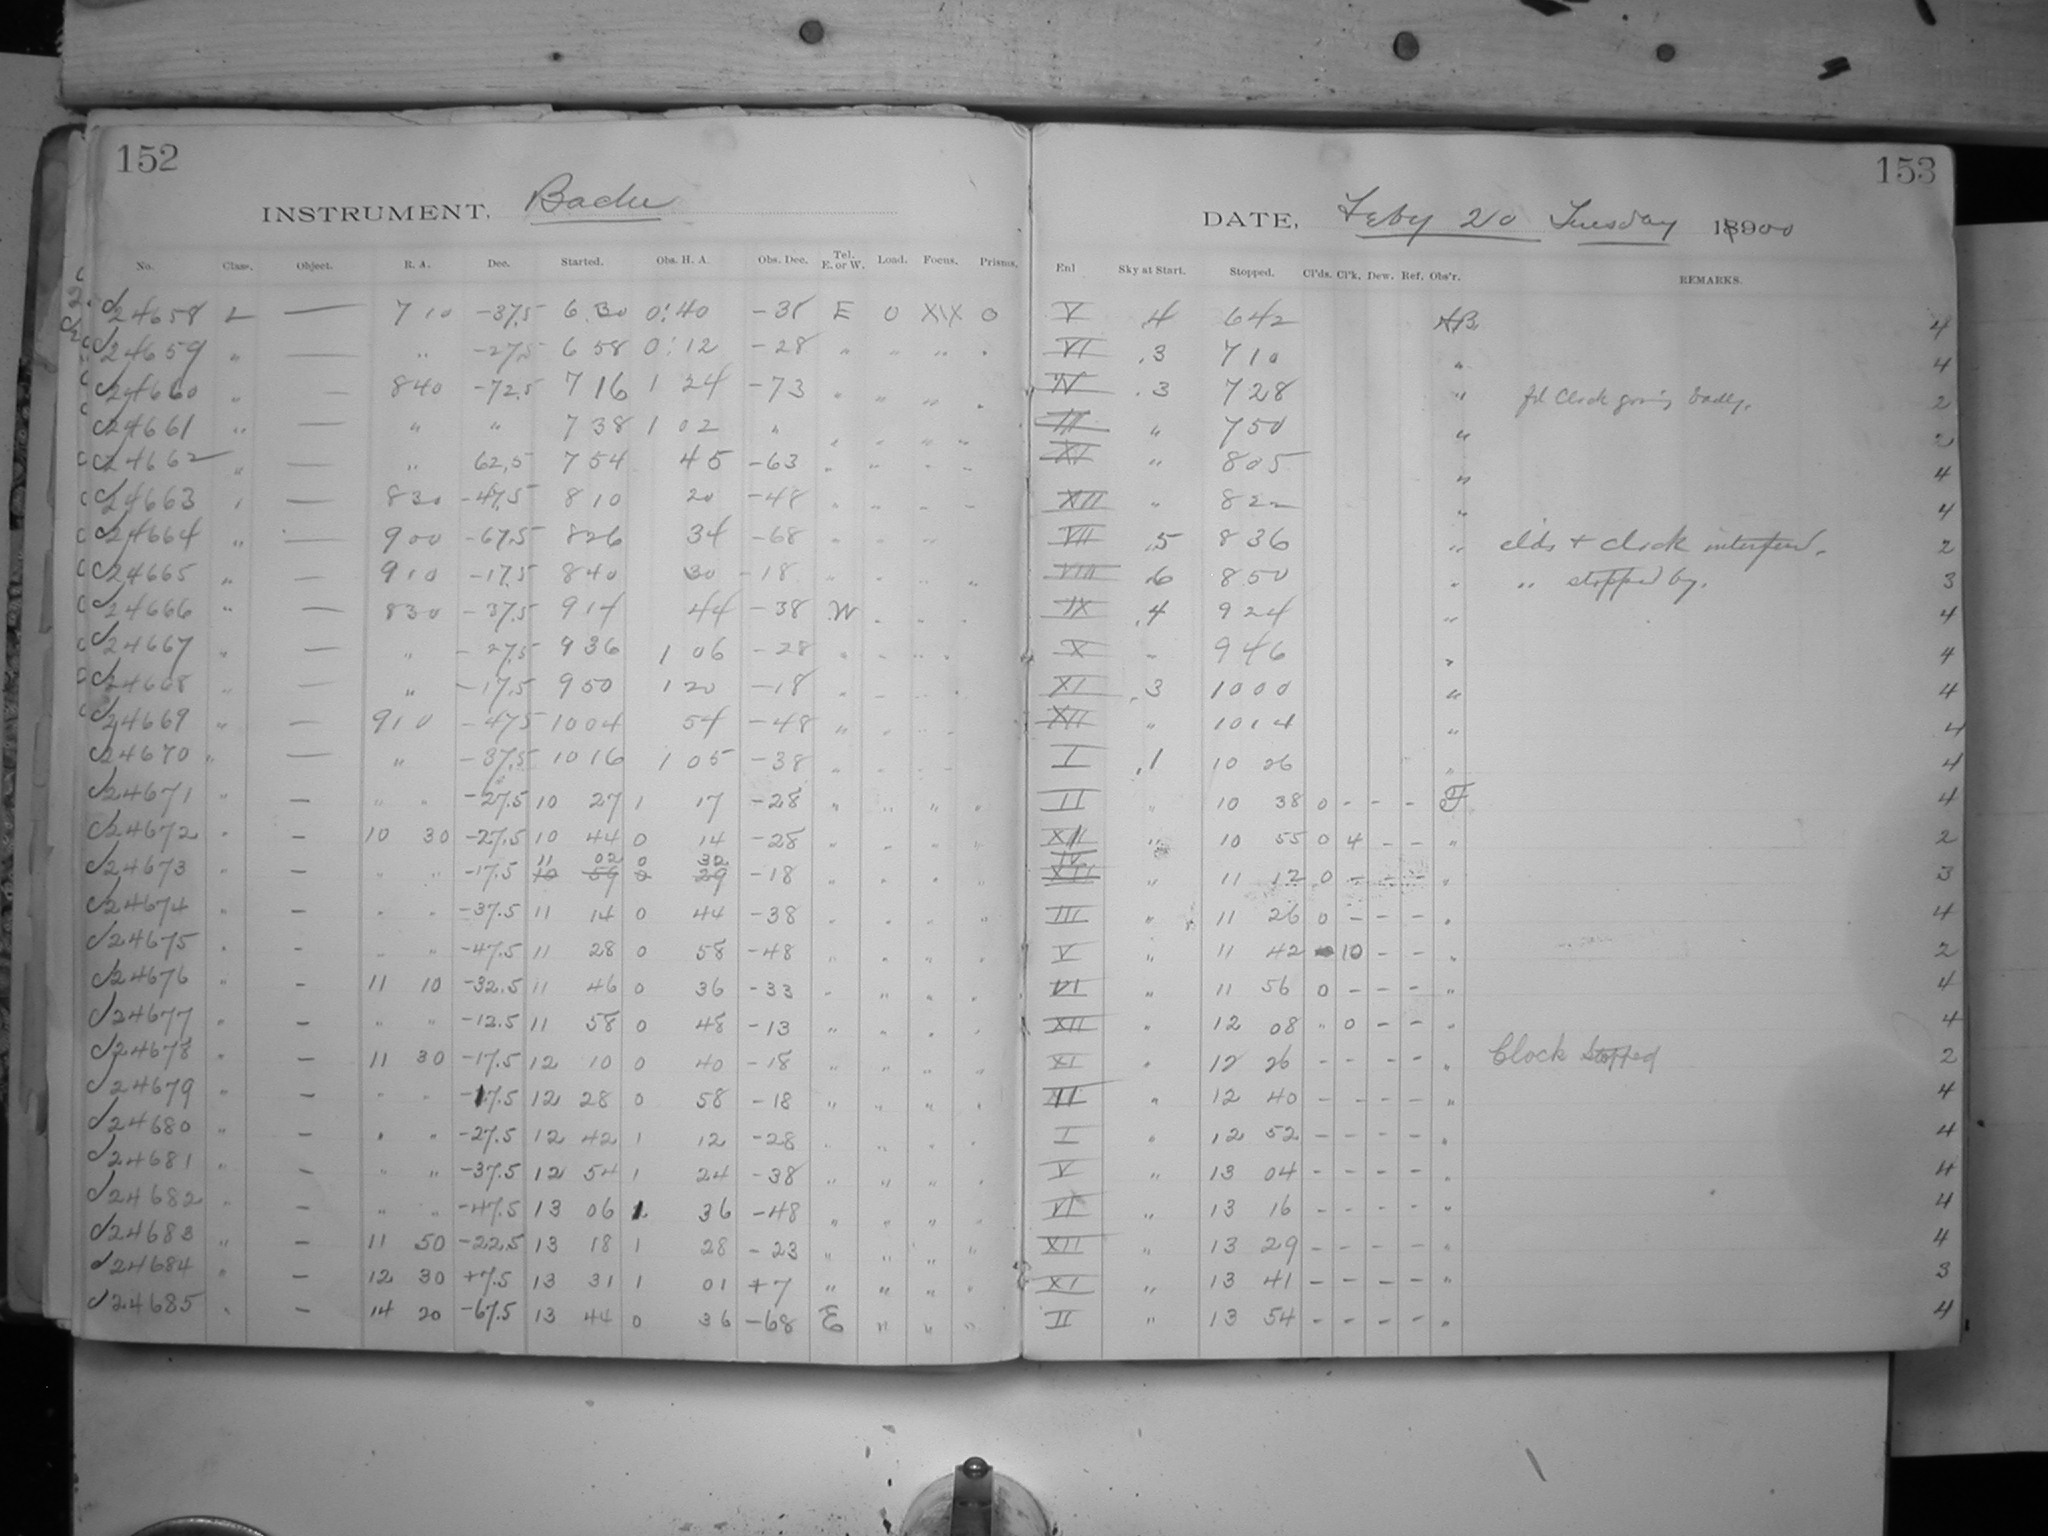 152
INSTRUMENT, Bache
No. Class. Object. R. A. Dec. Started. Obs. H. A. Obs. Dec. Tel. E. or W. Load. Focus. Prisms.
24658 L — 7 10 -37.5 6 30 0:40 -38 E 0 XIX 0
24659 " — " -27.5 6 58 0:12 -28 " " " "
24660 " — 8 40 -72.5 7 16 1 24 -73 " " " "
24661 " — " " 7 38 1 02 " " " " "
24662 " — " 62.5 7 54 45 -63 " " " "
24663 " — 8 30 -47.5 8 10 20 -48 " " " "
24664 " — 9 00 -67.5 8 26 34 -68 " " "
24665 " — 9 10 -17.5 8 40 30 -18 " " " "
24666 " — 8 30 -37.5 9 14 44 -38 W " " "
24667 " — " -27.5 9 36 1 06 -28 " " " "
24668 " — " -17.5 9 50 1 20 -18 " " " "
24669 " — 9 10 -47.5 10 04 54 -48 " " " "
24670 " — " -37.5 10 16 1 05 -38 " " " "
24671 " — " " -27.5 10 27 1 17 -28 " " " "
24672 " — 10 30 -27.5 10 44 0 14 -28 " " " "
11 02 0 32
24673 " — " " -17.5 10 59 0 29 -18 " " " "
24674 " — " " -37.5 11 14 0 44 -38 " " " "
24675 " — " " -47.5 11 28 0 58 -48 " " " "
24676 " — 11 10 -32.5 11 46 0 36 -33 " " " "
24677 " — " " -12.5 11 58 0 48 -13 " " " "
24678 " — 11 30 -17.5 12 10 0 40 -18 " " " "
24679 " — " " -17.5 12 28 0 58 -18 " " " "
24680 " — " " -27.5 12 42 1 12 -28 " " " "
24681 " — " " -37.5 12 54 1 24 -38 " " " "
24682 " — " " -47.5 13 06 1 36 -48 " " " "
24683 " — 11 50 -22.5 13 18 1 28 -23 " " " "
24684 " — 12 30 +7.5 13 31 1 01 +7 " " " "
24685 " — 14 20 -67.5 13 44 0 36 -68 E " " "
153
DATE, Feby 20 Tuesday 1900
Enl Sky at Start. Stopped. Cl'ds. Cl'k. Dew. Ref. Obs'r. REMARKS.
V .4 6 42 AB 4
VI .3 7 10 " 4
IV .3 7 28 " fd Clock going badly. 2
III " 7 50 " 2
XI " 8 05 " 4
XII " 8 22 " 4
VII .5 8 36 " clds + clock interfered. 2
VIII .6 8 50 " " stopped by. 3
IX .4 9 24 " 4
X " 9 46 " 4
XI .3 10 00 " 4
XII " 10 14 " 4
I .1 10 26 " 4
II " 10 38 0 - - - F 4
XII " 10 55 0 4 - - " 2
IV
XII " 11 12 0 - - - " 3
III " 11 26 0 - - - " 4
V " 11 42 10 - - " 2
VI " 11 56 0 - - - " 4
XII " 12 08 " 0 - - " 4
XI " 12 26 - - - - " Clock Stopped 2
" 12 40 - - - - " 4
I " 12 52 - - - - " 4
V " 13 04 - - - - " 4
VI " 13 16 - - - - " 4
XII " 13 29 - - - - " 4
XI " 13 41 - - - - " 3
II " 13 54 - - - - " 4